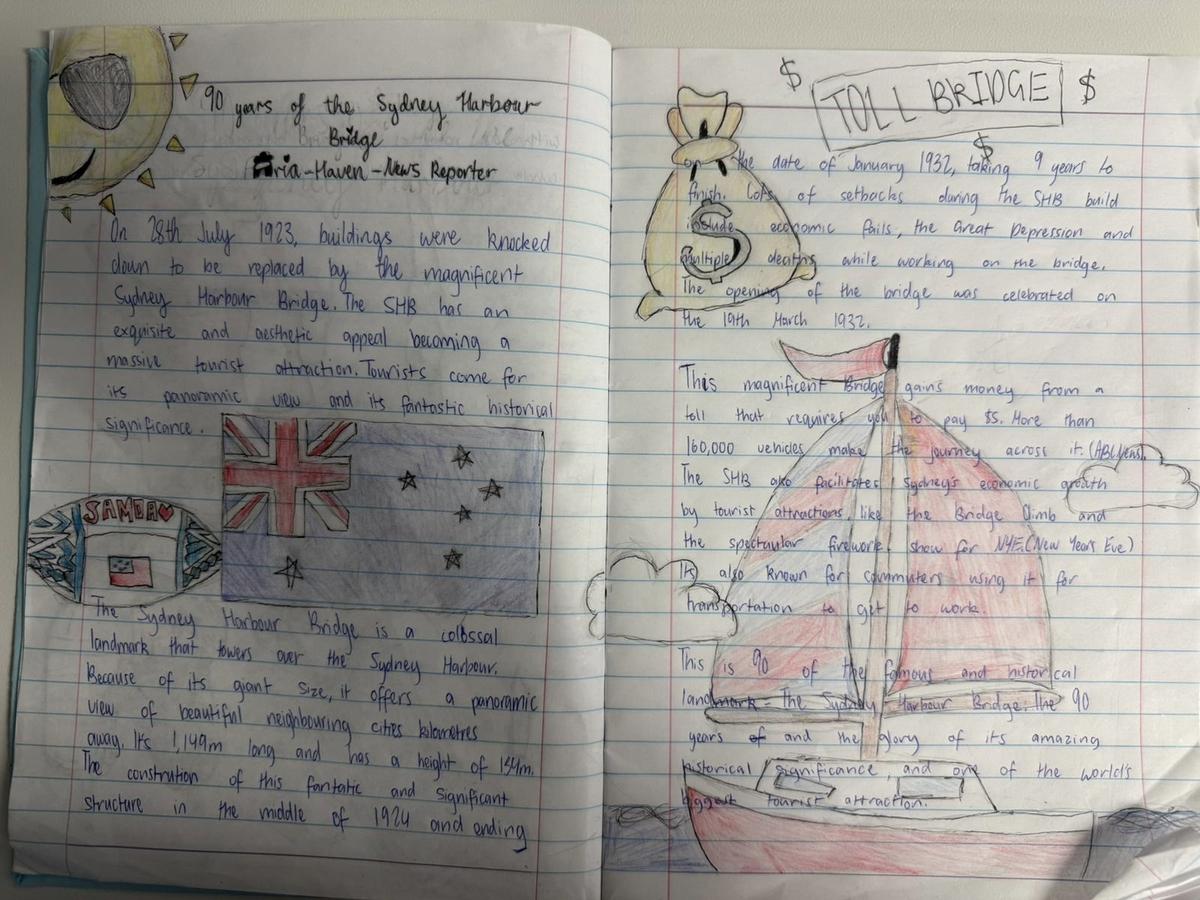 90 years of the Sydney Harbour
Bridge
Aria-Haven-News Reporter
On 28th July 1923, buildings were knocked
down to be replaced by the magnificent
Sydney Harbour Bridge. The SHB has an
exquisite and aesthetic appeal becoming a
massive tourist attraction. Tourists come for
its panoramic view and its fantastic historical
significance.
SAMOA
The Sydney Harbour Bridge is a colossal
landmark that towers over the Sydney Harbour.
Because of its giant size, it offers a panoramic
view of beautiful neighbouring cities kilometres
away. Its 1,149m long and has a height of 134m.
The constrution of this fantatic and significant
structure in the middle of 1924 and ending
$ TOLL BRIDGE $
$
on the date of January 1932, taking 9 years to
finish. Lots of setbacks during the SHB build
include economic fails, the Great Depression and
multiple deaths while working on the bridge.
The opening of the bridge was celebrated on
the 19th March 1932.
$
This magnificent Bridge gains money from a
toll that requires you to pay $5. More than
160,000 vehicles make the journey across it. (ABC News).
The SHB also facilitates Sydney's economic growth
by tourist attractions like the Bridge Climb and
the spectaular firework show for NYE. (New Years Eve)
Its also known for commuters using it for
transportation to get to work.
This is 90 of the famous and historical
landmark - The Sydney Harbour Bridge. The 90
years of and the glory of its amazing
historical significance, and one of the world's
biggest tourist attraction.